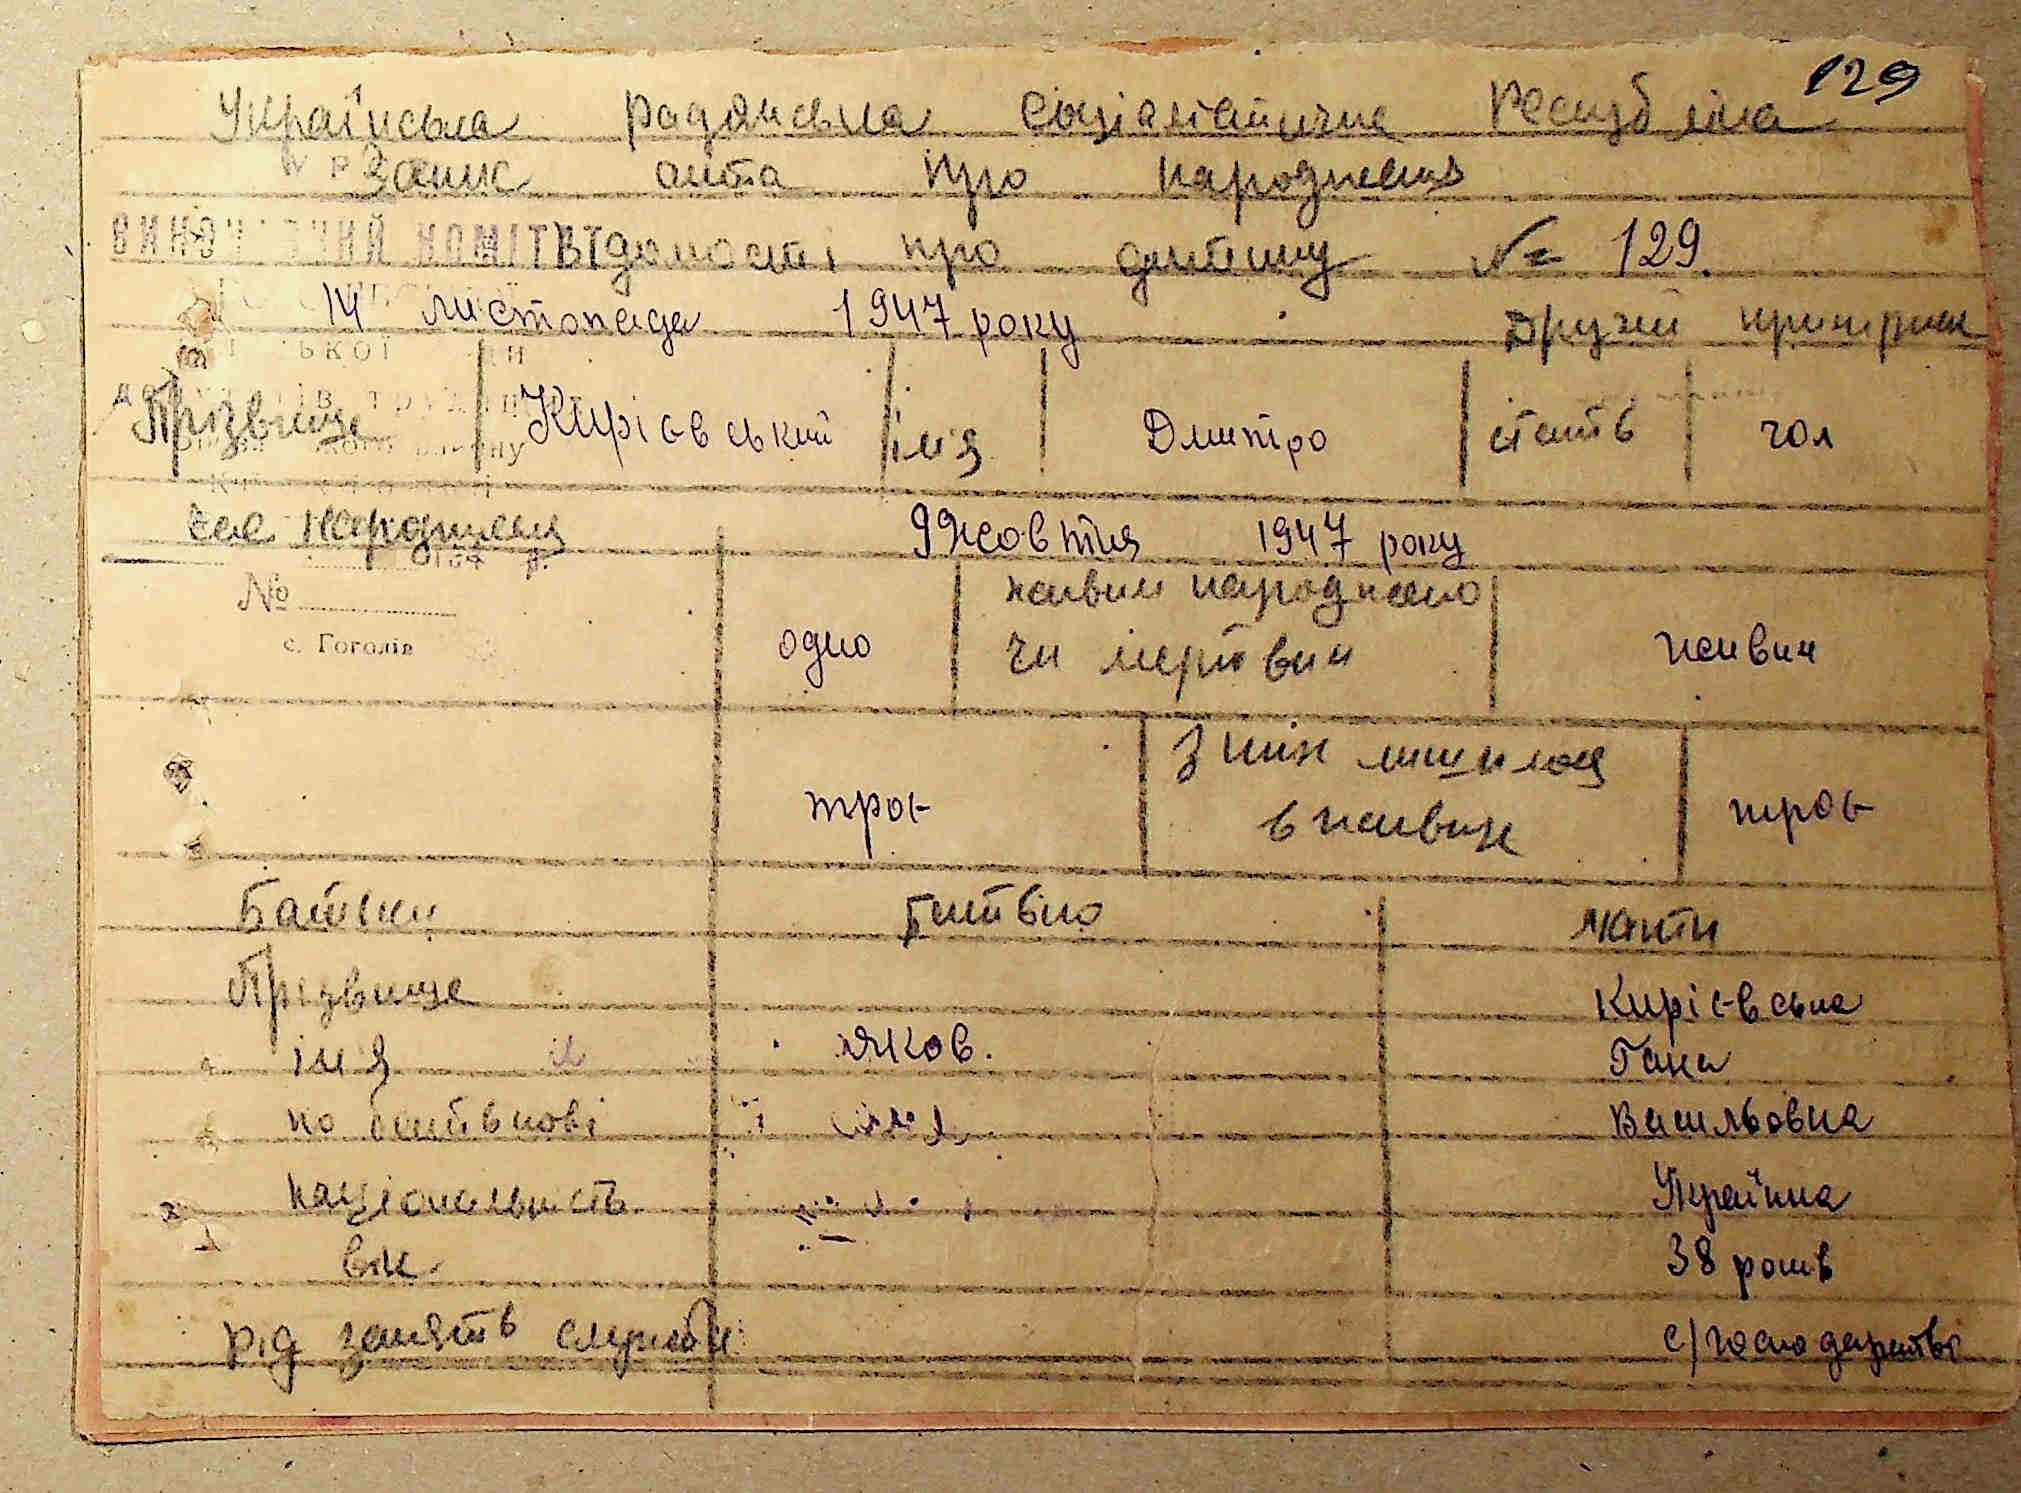 129
Українська радянська соціалістична Республіка
Запис акта про народження
ВИКОНАВЧИЙ КОМІТЕТ
Відомості про дитину № 129.
14 листопада 1947 року Другий примірник
Прізвище Кирієвський ім'я Дмитро стать чол
час народження 9 Жовтня 1947 року
№
с. Гоголів
одно живим народжено чи мертвим живим
троє З них лишилося в живих троє
Батьки Батько Мати
Прізвище Кирієвська
ім'я Яков. Гана
по батькові Васильовна
національність Українка
вік 38 років
рід занять служби с/господарстві